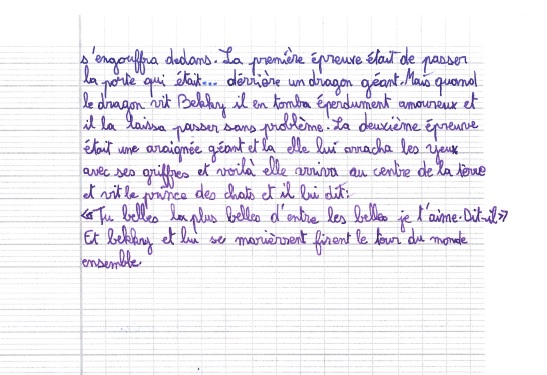 s'engouffra dedans. La première épreuve était de passer
la porte qui était... dérrière un dragon géant. Mais quand
le dragon vit Bekkry il en tomba éperdument amoureux et
il la laissa passer sans problème. La deuxième épreuve
était une araignée géant et la elle lui arracha les yeux
avec ses griffres et voilà elle arriva au centre de la terre
et vit le prince des chats et il lui dit:
«Tu belles la plus belles d'entre les belles je t'aime. Dit-il»
Et bekkry et lui se marièrrent firent le tour du monde
ensemble.